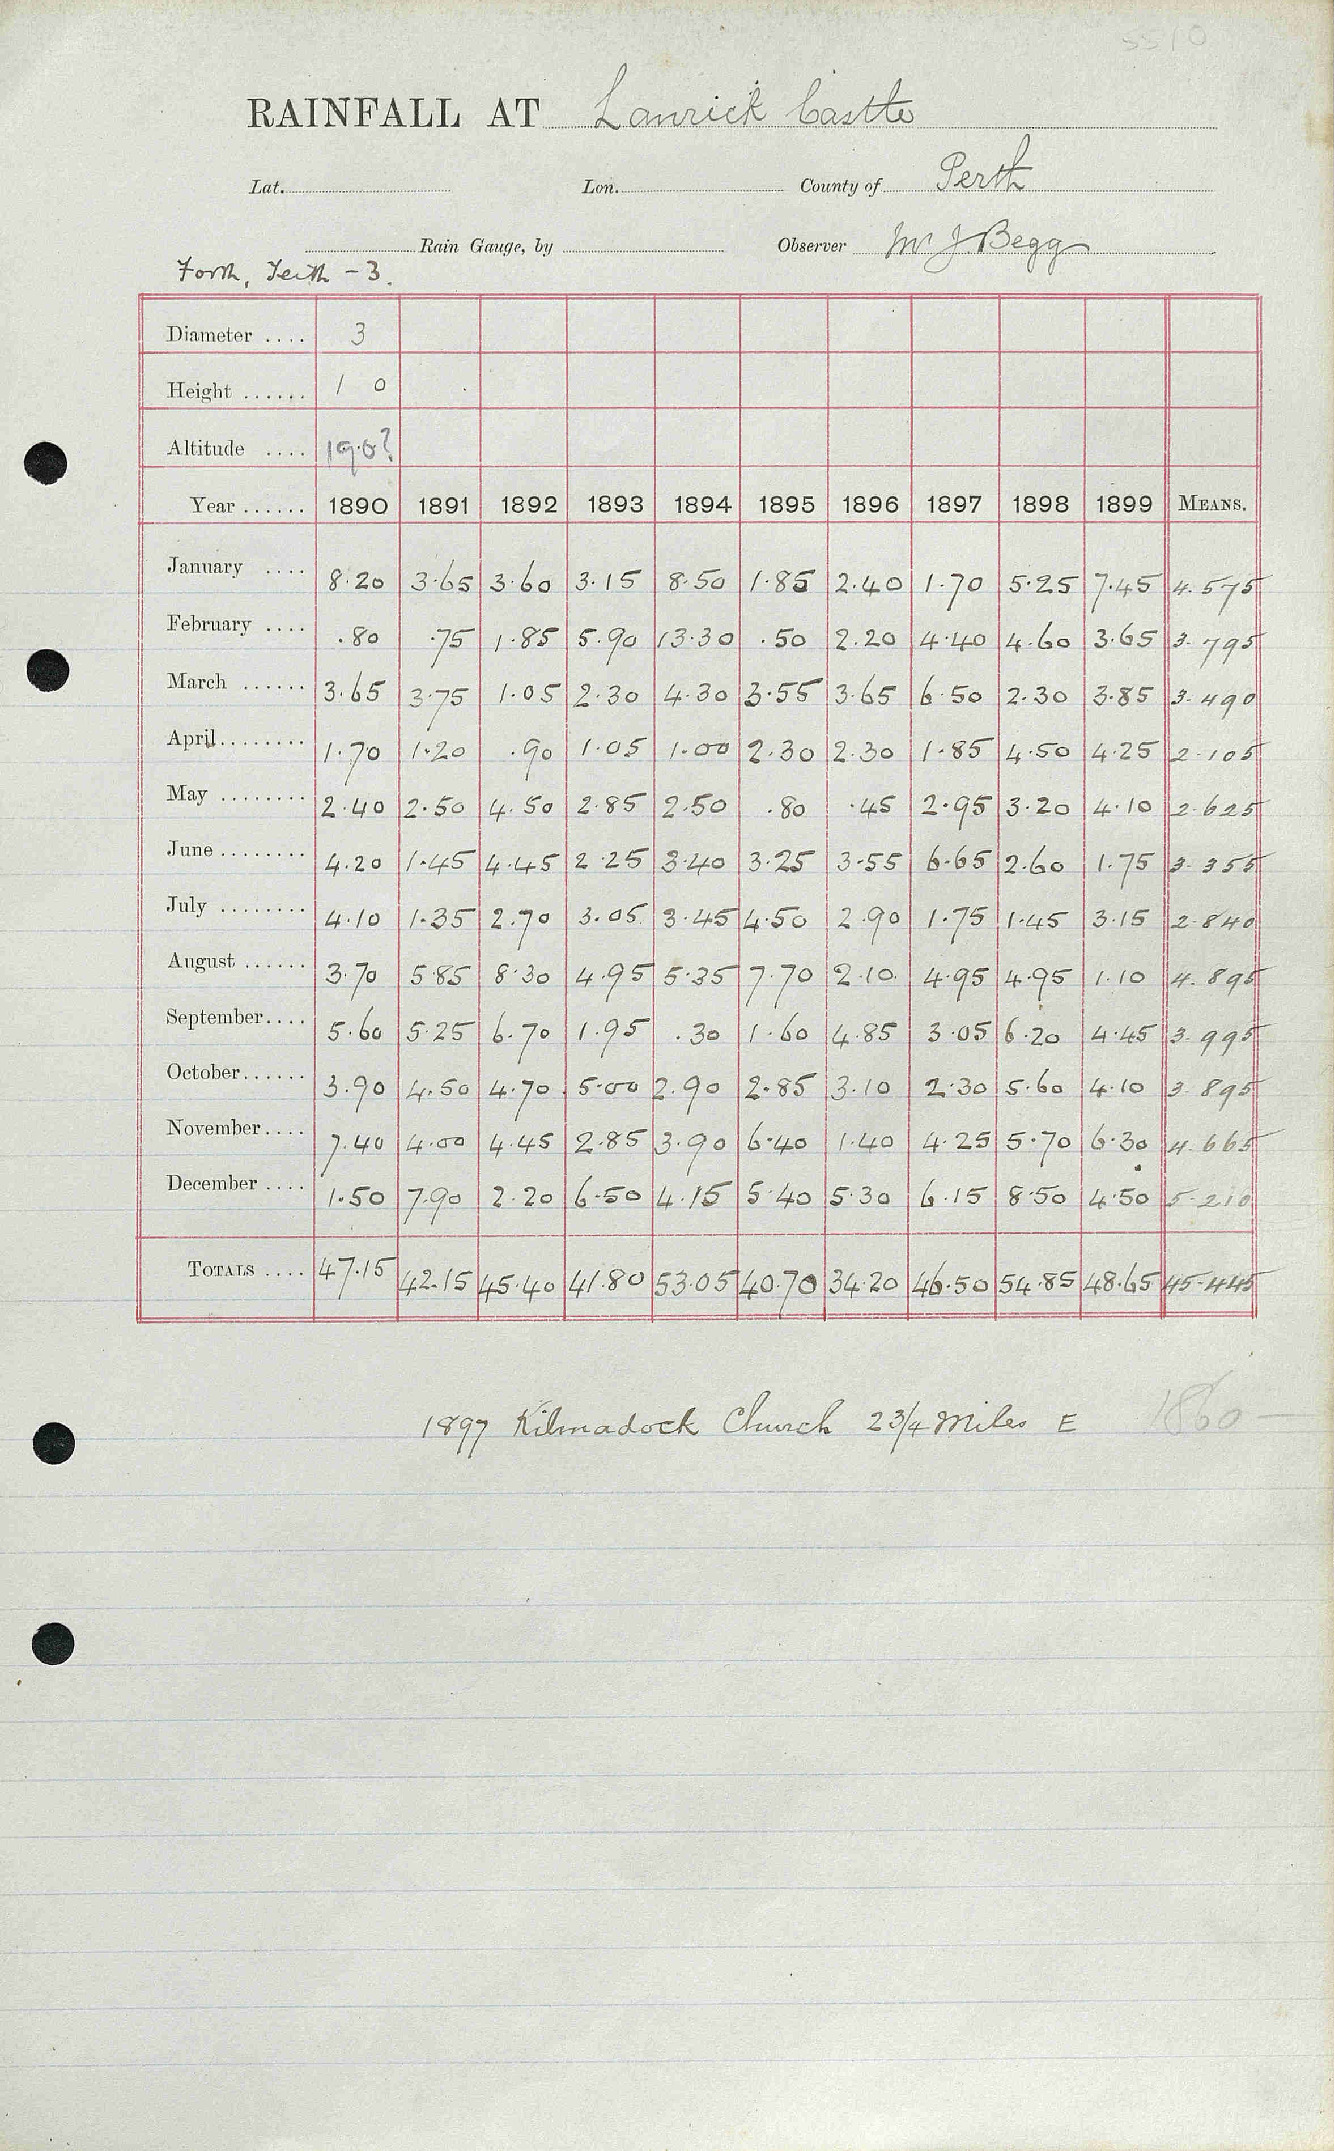 5510
RAINFALL AT Lanrick Castle
Lat. Lon. County of Perth
Rain Gauge, by Observer Mr J Begg
Forth, Teith - 3.
Diameter .... 3
Height ...... 1 0
Altitude .... 190?
Year ...... 1890 1891 1892 1893 1894 1895 1896 1897 1898 1899 MEANS.
January .... 8.20 3.65 3.60 3.15 8.50 1.85 2.40 1.70 5.25 7.45 4.575
February .... .80 .75 1.85 5.90 13.30 .50 2.20 4.40 4.60 3.65 3.795
March ...... 3.65 3.75 1.05 2.30 4.30 3.55 3.65 6.50 2.30 3.85 3.490
April........ 1.70 1.20 .90 1.05 1.00 2.30 2.30 1.85 4.50 4.25 2.105
May ........ 2.40 2.50 4.50 2.85 2.50 .80 .45 2.95 3.20 4.10 2.625
June ........ 4.20 1.45 4.45 2.25 3.40 3.25 3.55 6.65 2.60 1.75 3.355
July ........ 4.10 1.35 2.70 3.05 3.45 4.50 2.90 1.75 1.45 3.15 2.840
August ...... 3.70 5.85 8.30 4.95 5.35 7.70 2.10 4.95 4.95 1.10 4.895
September.... 5.60 5.25 6.70 1.95 .30 1.60 4.85 3.05 6.20 4.45 3.995
October...... 3.90 4.50 4.70 5.00 2.90 2.85 3.10 2.30 5.60 4.10 3.895
November.... 7.40 4.00 4.45 2.85 3.90 6.40 1.40 4.25 5.70 6.30 4.665
December .... 1.50 7.90 2.20 6.50 4.15 5.40 5.30 6.15 8.50 4.50 5.210
TOTALS .... 47.15 42.15 45.40 41.80 53.05 40.70 34.20 46.50 54.85 48.65 45.445
1897 Kilmadock Church 2 3/4 Miles E 1860 -